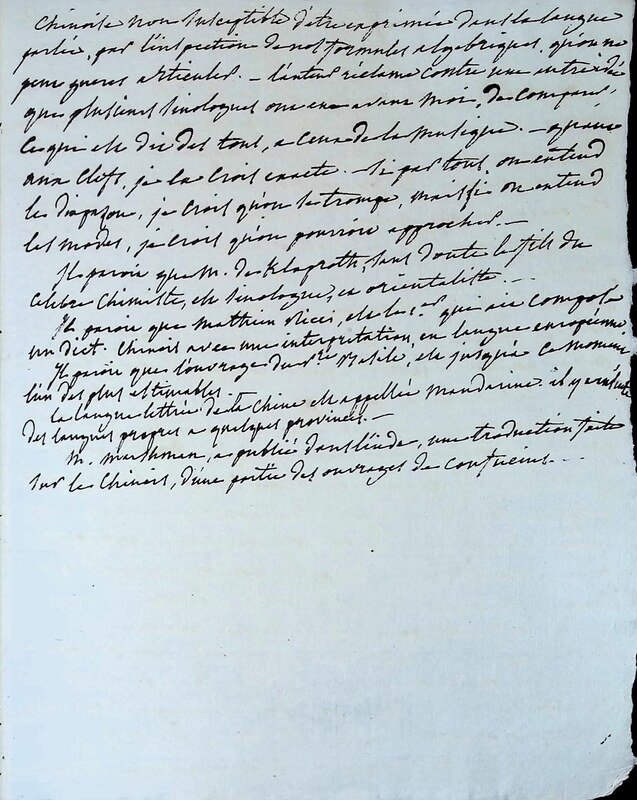 Chinoise non susceptible d'être exprimée dans la langue
parlée, par l'inspection de nos formules algebriques, qu'on ne
peut gueres articuler. — l'auteur réclame contre une autre idée
que plusieurs sinologues ont eue avant moi, de comparer
ce qui est dit des tons, a ceux de la musique. — quant
aux clefs, je la crois exacte. — si par tons, on entend
le diapazon, je crois qu'on se trompe, mais si on entend
les modes, je crois qu'on pourroit approcher. —
Il paroit que M. de Klaproth, sans doute le fils du
célebre chimiste, est sinologue, et orientaliste. —
Il paroit que Mathieu Ricci, est le 1er qui ait composé
un dict. chinois avec une interprétation, en langue européenne.
Il paroit que l'ouvrage du Basile, est jusqu'a ce moment
l'un des plus estimables. —
La langue lettrée de la Chine est appellée Mandarine. il y a ensuite
des langues propres a quelques provinces. —
M. Marshman, a publié dans l'inde, une traduction faite
sur le Chinois, d'une partie des ouvrages de Confucius. —